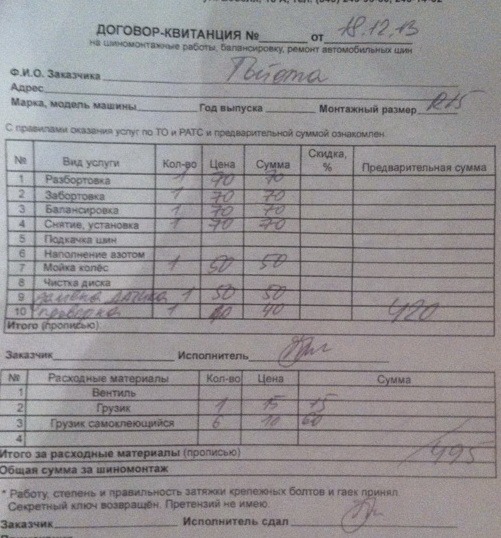 ДОГОВОР-КВИТАНЦИЯ №________ от 18.12.13
на шиномонтажные работы, балансировку, ремонт автомобильных шин
Ф.И.О. Заказчика Тойота
Адрес
Марка, модель машины Год выпуска Монтажный размер R15
С правилами оказания услуг по ТО и РАТС и предварительной суммой ознакомлен.
№ Вид услуги Кол-во Цена Сумма Скидка, % Предварительная сумма
1 Разбортовка 1 70 70
2 Забортовка 1 70 70
3 Балансировка 1 70 70
4 Снятие, установка 1 70 70
5 Подкачка шин
6 Наполнение азотом
7 Мойка колёс 1 50 50
8 Чистка диска
9 замена датчика 1 50 50
10 проверка 1 40 40 420
Итого (прописью)
Заказчик Исполнитель
№ Расходные материалы Кол-во Цена Сумма
1 Вентиль
2 Грузик 1 15 15
3 Грузик самоклеющийся 6 10 60
4
Итого за расходные материалы (прописью) 495
Общая сумма за шиномонтаж
* Работу, степень и правильность затяжки крепежных болтов и гаек принял.
Секретный ключ возвращён. Претензий не имею.
Заказчик Исполнитель сдал